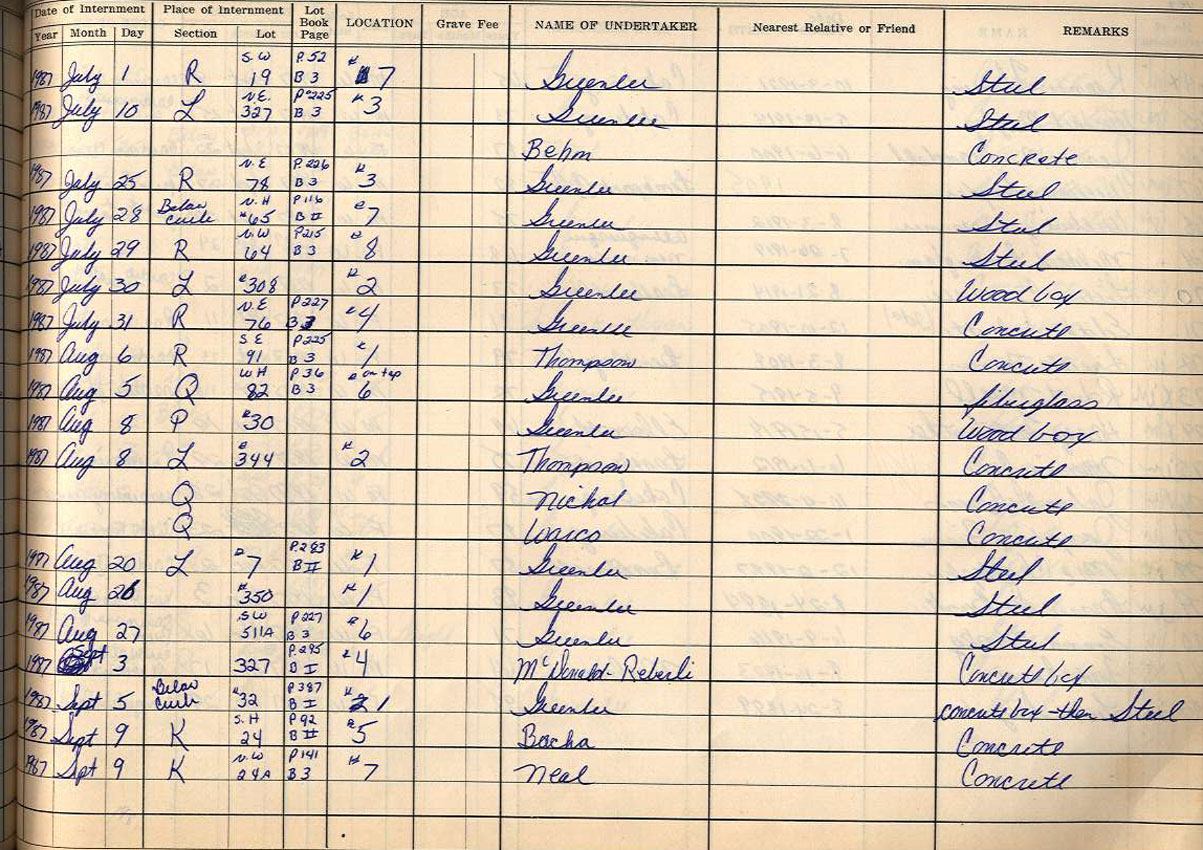 Date of Internment Place of Internment Lot Book Page LOCATION Grave Fee NAME OF UNDERTAKER Nearest Relative or Friend REMARKS
Year Month Day Section Lot
S.W P.52
1987 July 1 R 19 B 3 # 7 Greenlee Steel
N.E. P#225
1987 July 10 L 327 B.3 # 3 Greenlee Steel
Behm Concrete
N.E P.226
1987 July 25 R 78 B 3 # 3 Greenlee Steel
Below N.H P116
1987 July 28 curb #65 B II # 7 Greenlee Steel
N.W P215
1987 July 29 R 64 B 3 # 8 Greenlee Steel
1987 July 30 L #308 # 2 Greenlee Wood box
N.E P227
1987 July 31 R 76 B 3 # 4 Greenlee Concrete
S E P225
1987 Aug 6 R 91 B 3 # 1 Thompson Concrete
W H P36 # on top
1987 Aug 5 Q 82 B 3 6 Greenlee fiberglass
1987 Aug 8 P #30 Greenlee Wood box
1987 Aug 8 L # 344 # 2 Thompson Concrete
Q Nichol Concrete
Q Warco Concrete
P.283
1987 Aug 20 L # 7 B II # 1 Greenlee Steel
1987 Aug 26 #350 # 1 Greenlee Steel
S.W P227
1987 Aug 27 511A B 3 # 6 Greenlee Steel
Sept P.295
1987 3 327 B I # 4 McDonald-Reberli Concrete box
Below P387
1987 Sept 5 Curb #32 B I # 1 Greenlee concrete box - then Steel
S.H P92
1987 Sept 9 K 24 B II # 5 Bacha Concrete
N.W P141
1987 Sept 9 K 24A B 3 # 7 Neal Concrete